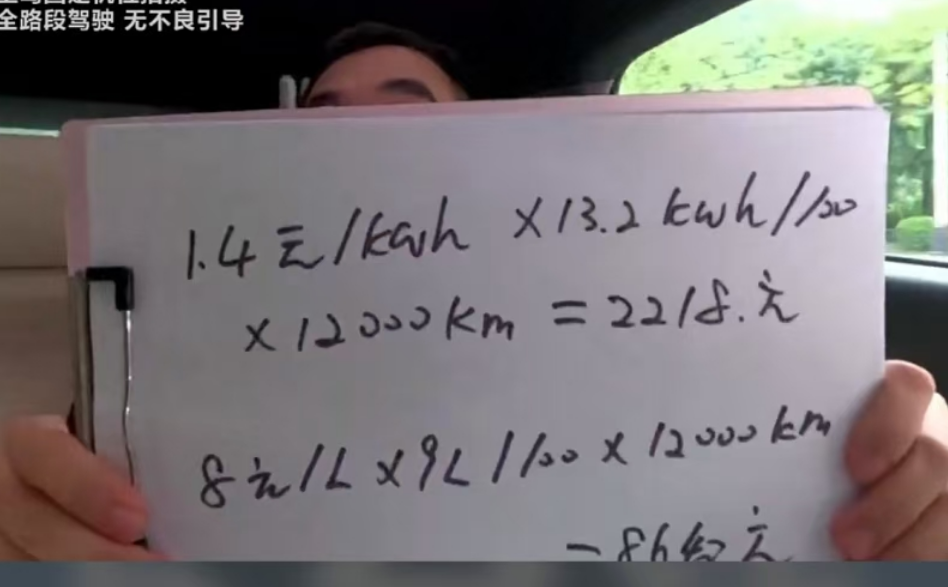 全路段驾驶 无不良引导
1.4元/kwh ×13.2kwh/100
×12000km =2218.元
8元/L×9L/100×12000km
=8640元